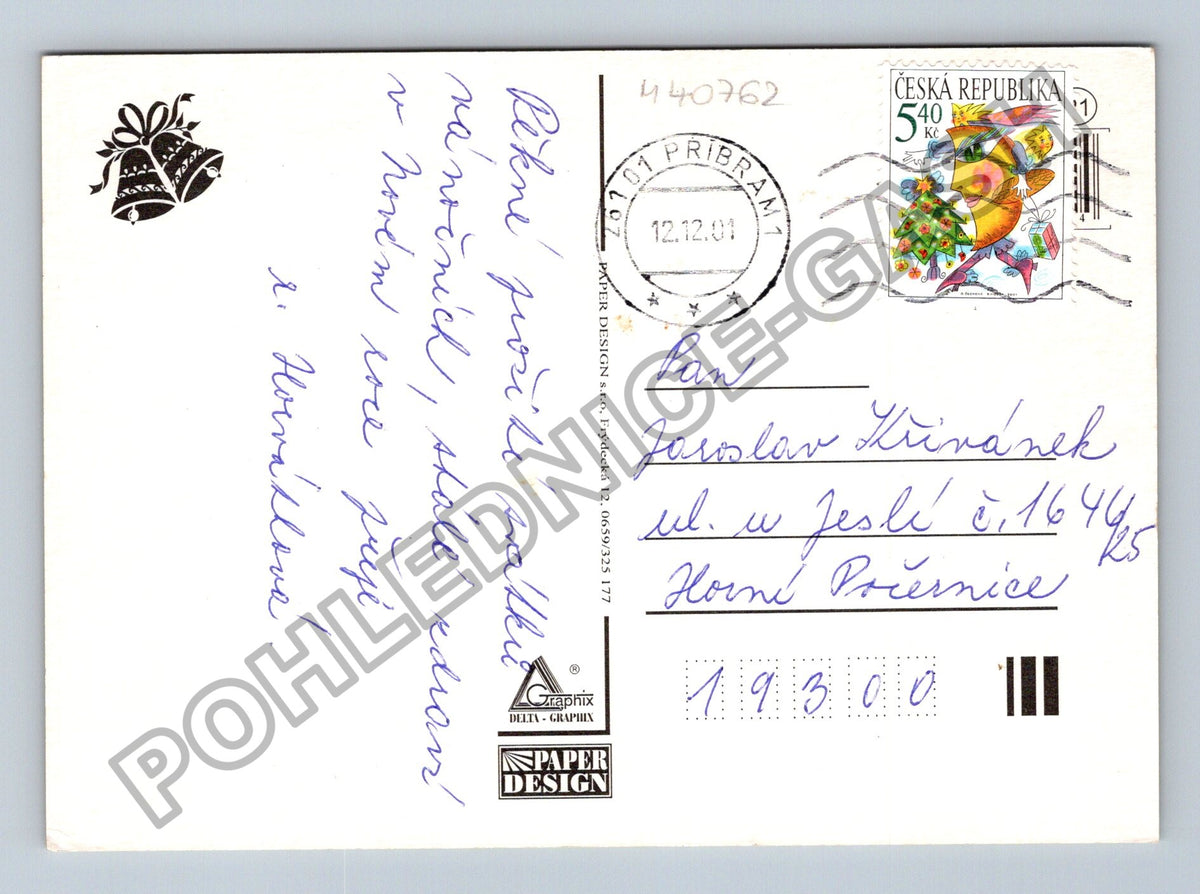 Pěkné prožití svátků
vánočních, stálé zdraví
v Novém roce přeje
r. Horváthová
440762
261 01 PŘÍBRAM 1
12.12.01
ČESKÁ REPUBLIKA
5 40
Kč
PAPER DESIGN s.r.o, Frýdecká 12, 0659/325 177
Pan
Jaroslav Křivánek
ul. u Jeslí č. 1644/25
Horní Počernice
19300
Graphix ®
DELTA - GRAPHIX
PAPER
DESIGN
POHLEDNICE-GACH